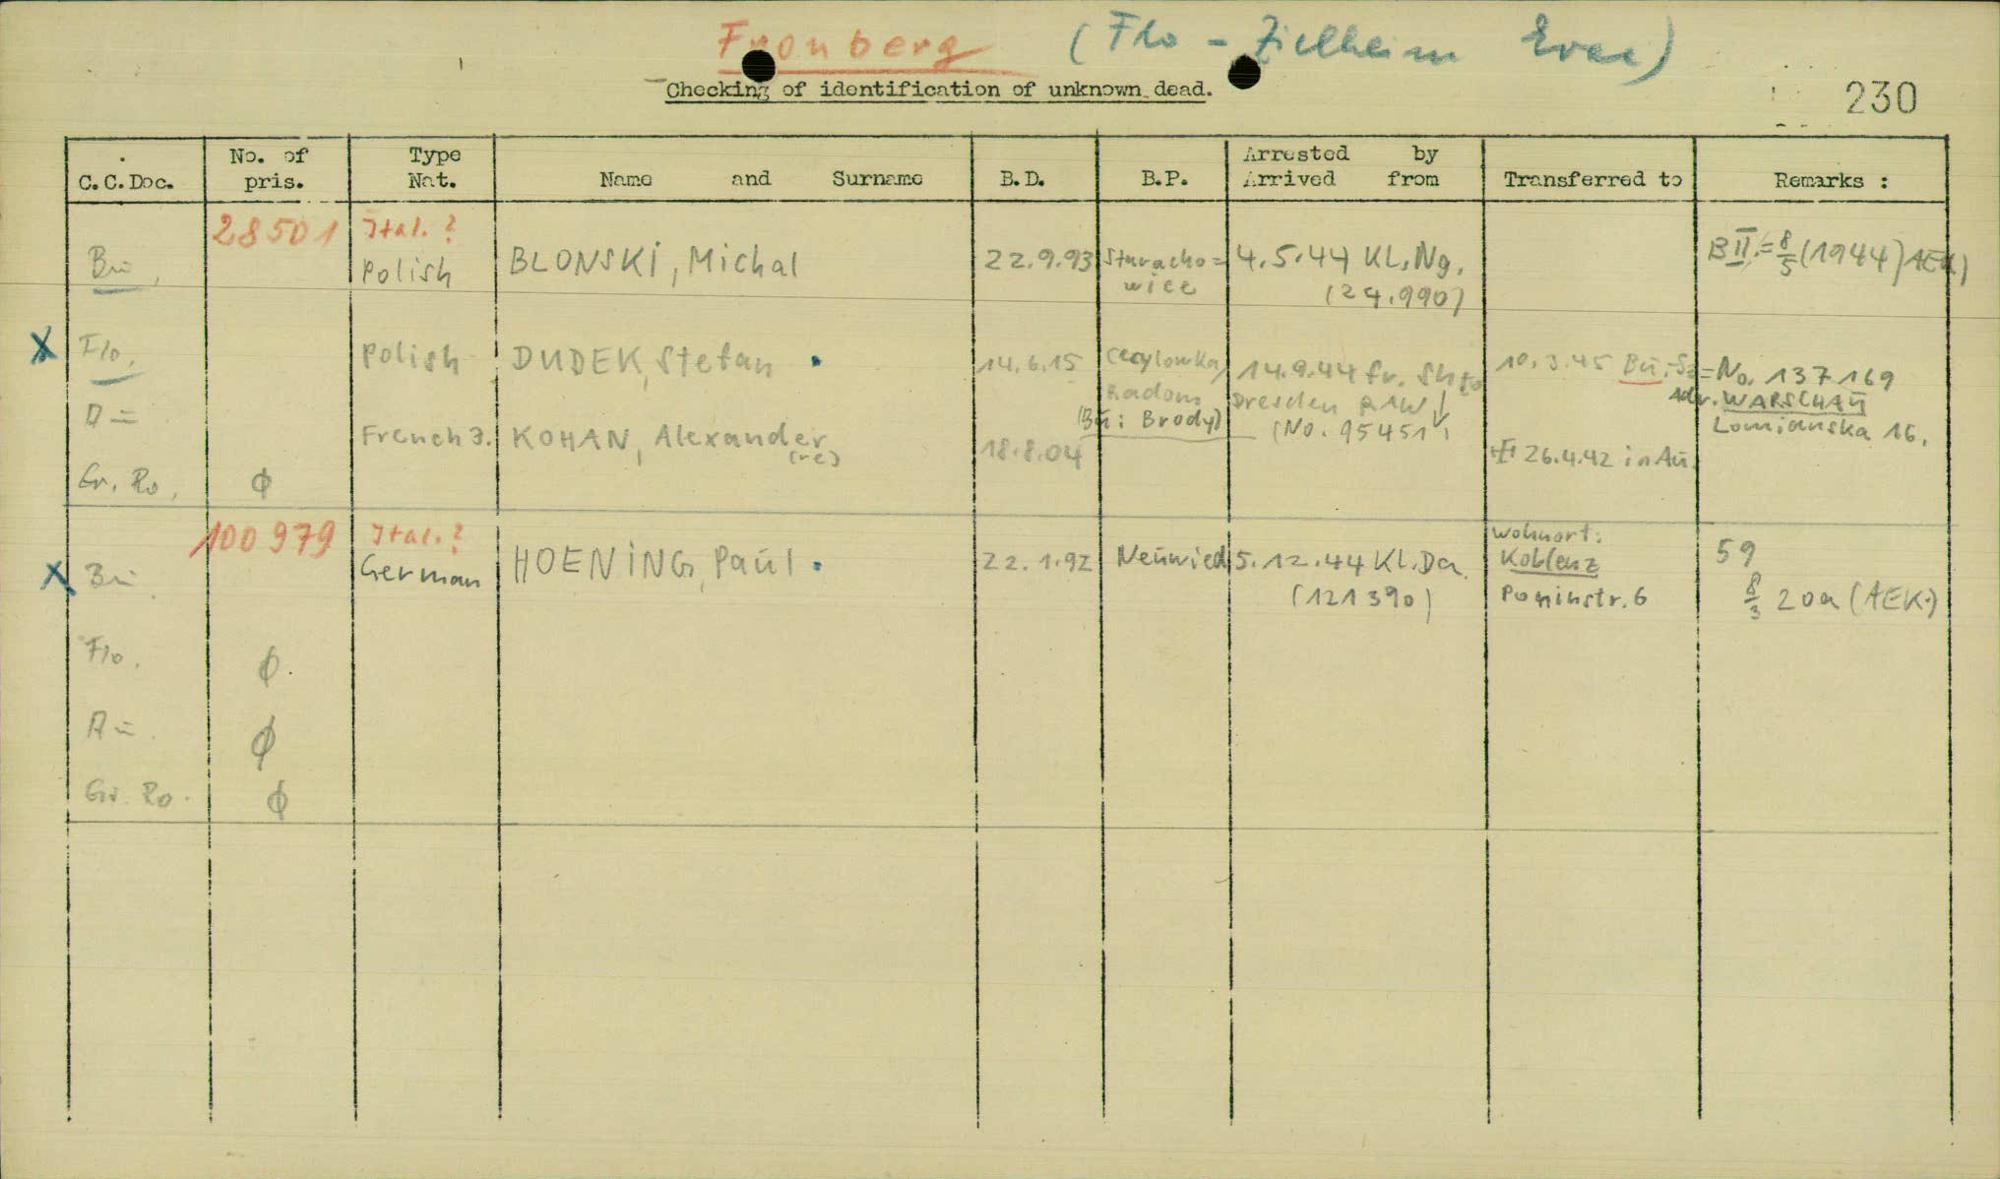 Fronberg (Flo - Evac)
Checking of identification of unknown dead.
230
C.C.Doc. No. of pris. Type Nat. Name and Surname B.D. B.P. Arrested by Arrived from Transferred to Remarks :
28501 Ital. ?
Bu. Polish BLONSKI, Michal 22.9.93 Staracho= wice 4.5.44 KL.Ng. (24.990) BII = 8/5 (1944) AEK)
X Flo. Polish DUDEK, Stefan 14.6.15 Radom (Bu: Brody) 14.9.44 fr. to Dresden RAW (No. 95451) 10.3.45 Bu. = No. 137169
adr. WARSCHAU
Lomianska 16.
Au French J. KOHAN, Alexander (re) 18.8.04 26.4.42 in Au.
Gr. Ro. ϕ
100979 Ital. ?
X Bu German HOENING, Paul 22.1.92 Neuwied 5.12.44 KL.Da. (121390) Wohnort: Koblenz 6 59
8/3 20a (AEK.)
Flo. ϕ
Au. ϕ
Gr. Ro. ϕ